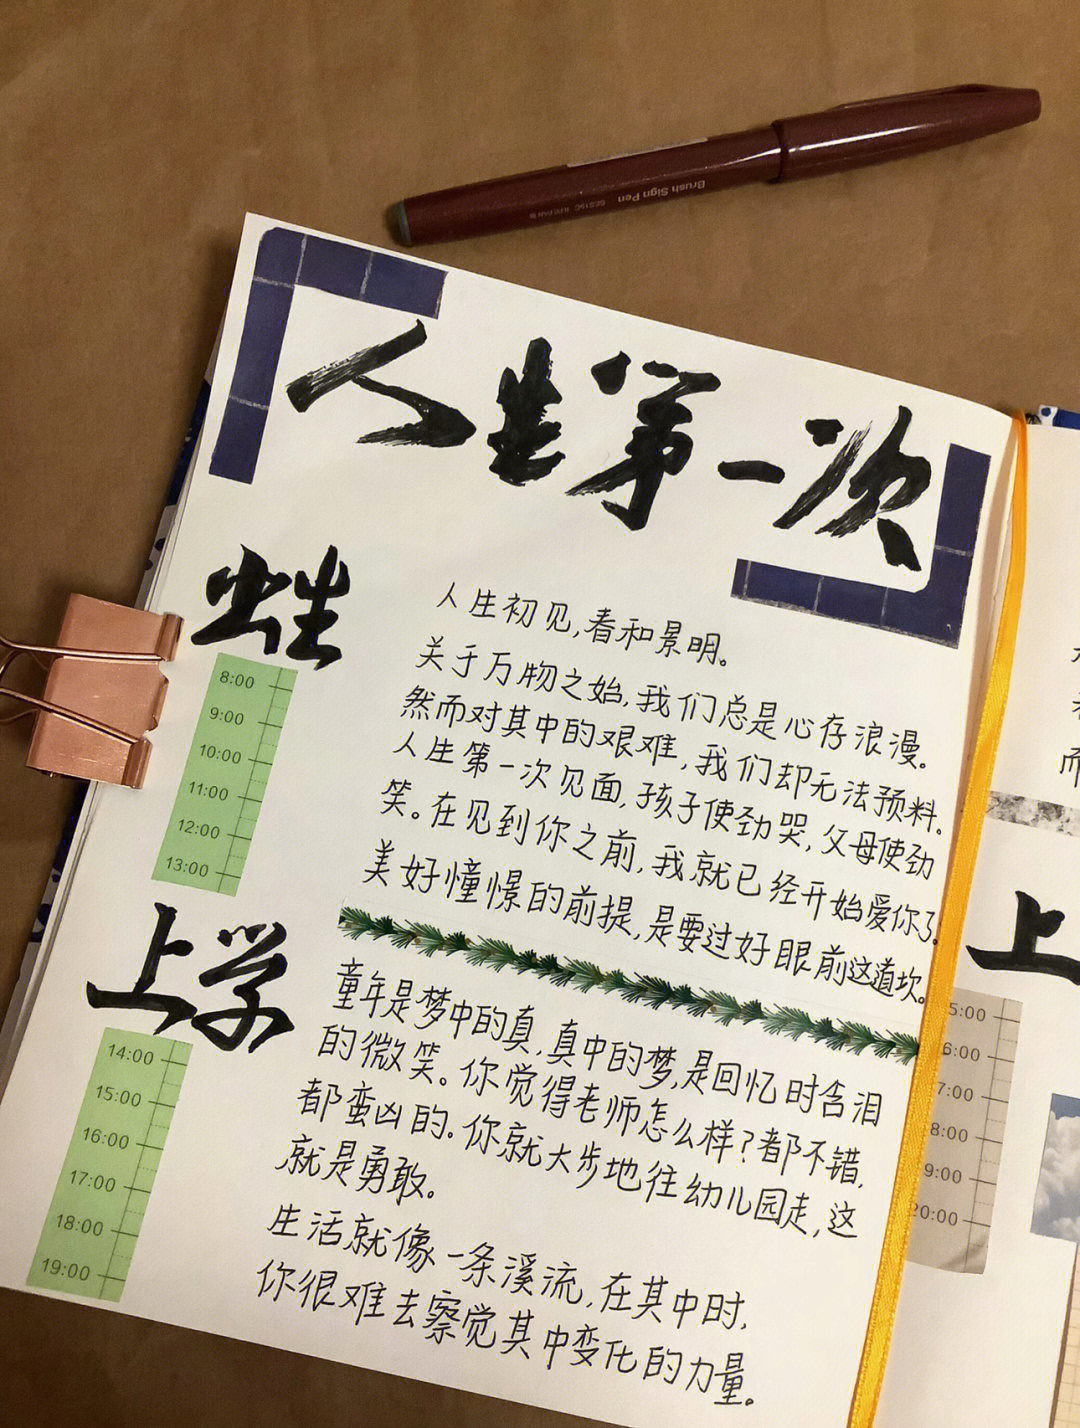 Brush Sign Pen
人生第一次
出生
8:00
9:00
10:00
11:00
12:00
13:00
人生初见,春和景明。
关于万物之始,我们总是心存浪漫。
然而对其中的艰难,我们却无法预料。
人生第一次见面,孩子使劲哭,父母使劲
笑。在见到你之前,我就已经开始爱你了。
美好憧憬的前提,是要过好眼前这道坎。
上学
14:00
15:00
16:00
17:00
18:00
19:00
童年是梦中的真,真中的梦,是回忆时含泪
的微笑。你觉得老师怎么样?都不错,
都蛮凶的。你就大步地往幼儿园走,这
就是勇敢。
生活就像一条溪流,在其中时,
你很难去察觉其中变化的力量。
而
上
5:00
6:00
7:00
8:00
9:00
20:00